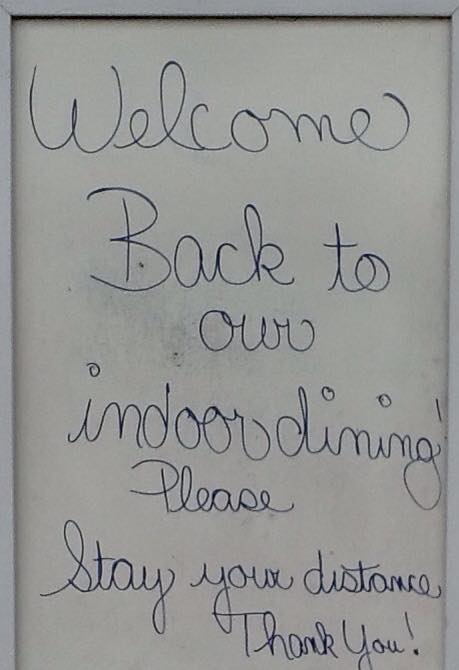 Welcome
Back to
our
indoor dining!
Please
Stay your distance
Thank You!